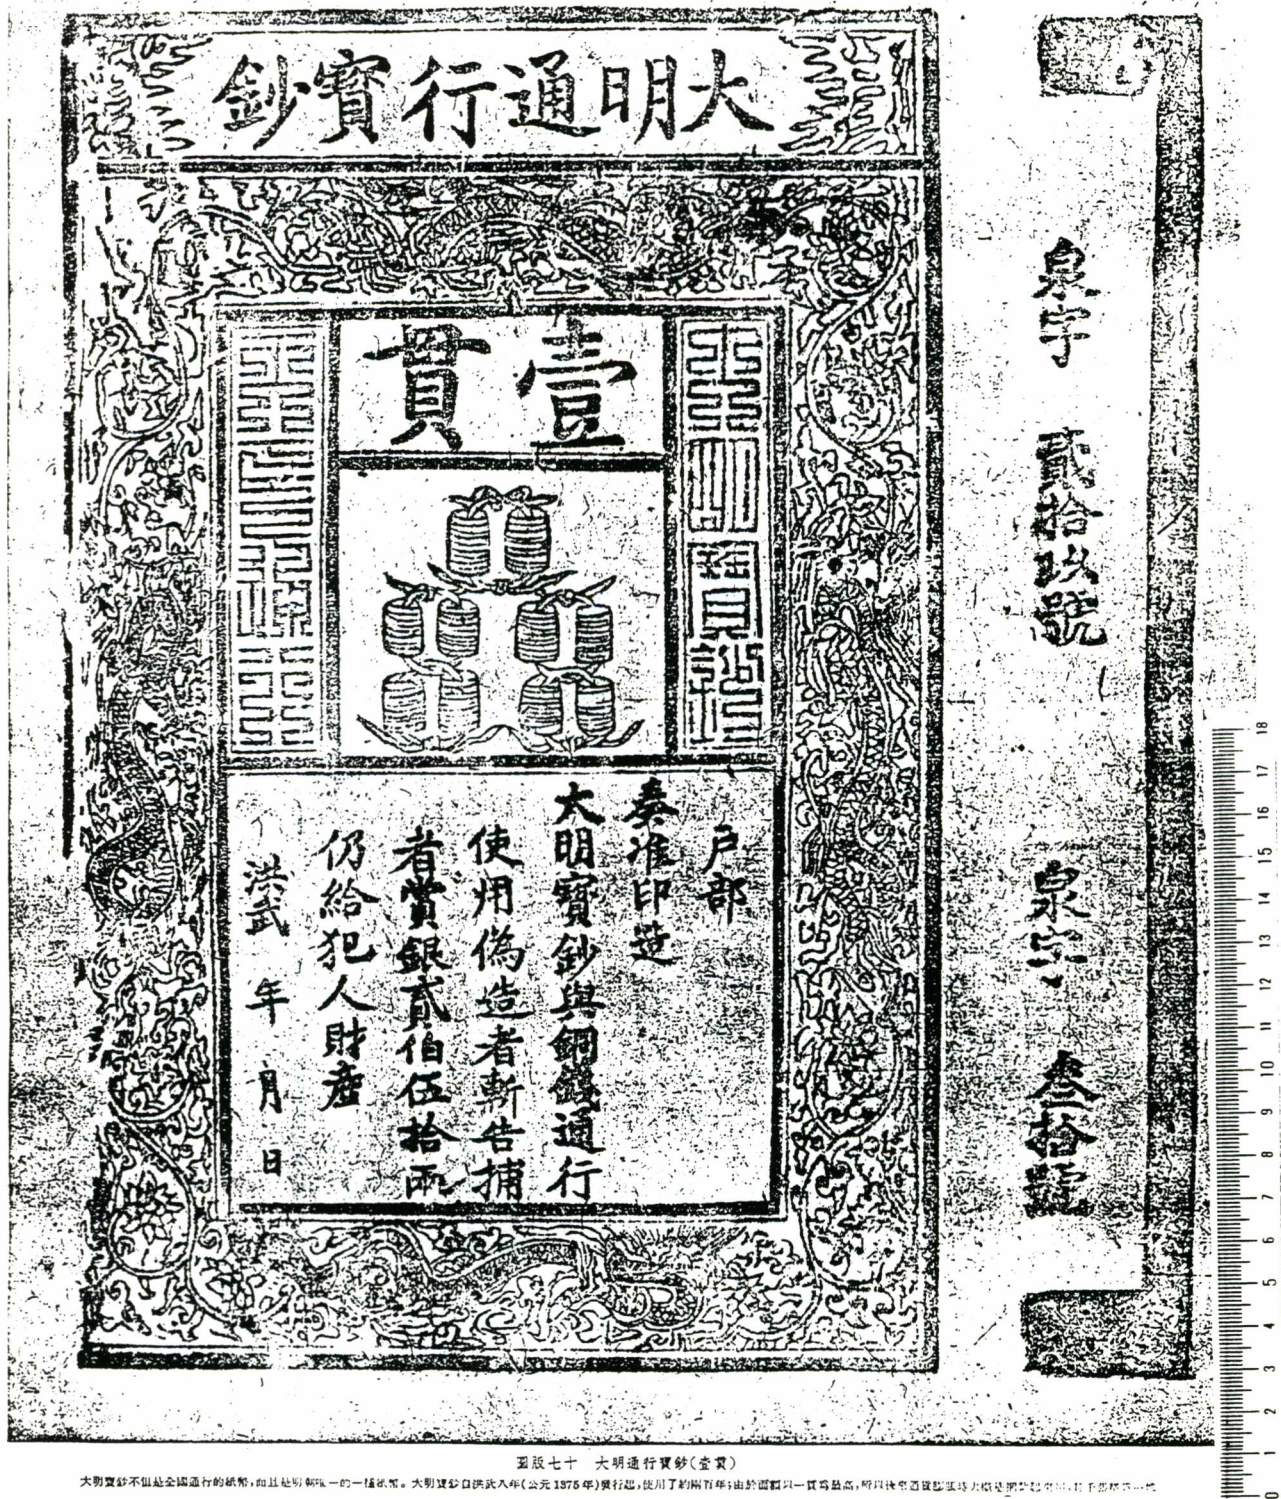 大明通行寶鈔
壹貫
戶部
奏准印造
大明寶鈔與銅錢通行
使用偽造者斬告捕
者賞銀貳伯伍拾兩
仍給犯人財產
洪武 年 月 日
泉字 貳拾玖號
泉字 叁拾
18
17
16
15
14
13
12
11
10
9
8
7
6
5
4
3
2
1
0
圖版七十 大明通行寶鈔(壹貫)
大明寶鈔不但是全國通行的紙幣,而且是明朝唯一的一種紙幣。大明寶鈔自洪武八年(公元1375年)發行起,使用了約兩百年;由於面額以一貫為最高,所以後來通貨膨脹時